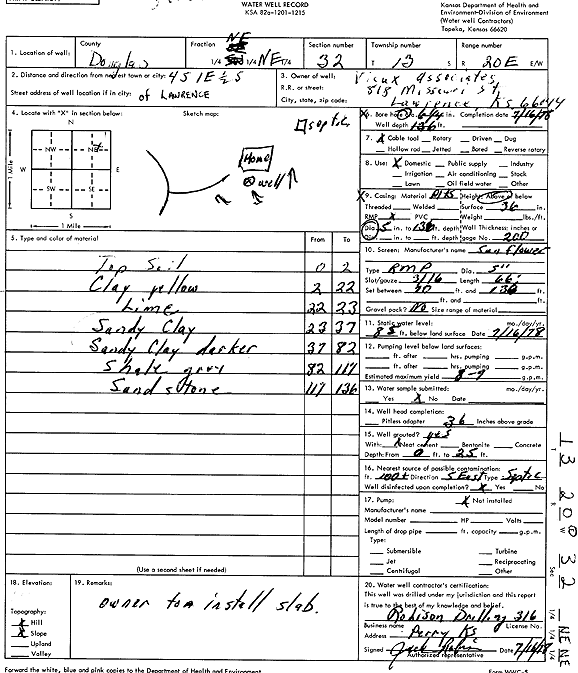 WATER WELL RECORD
KSA 82a-1201-1215
Kansas Department of Health and
Environment-Division of Environment
(Water well Contractors)
Topeka, Kansas 66620
1. Location of well:
County
Douglas
Fraction
NE
1/4 1/4 NE 1/4
Section number
32
Township number
T 13 S
Range number
R 20E E/W
2. Distance and direction from nearest town or city: 4S 1E ½ S
Street address of well location if in city: of LAWRENCE
3. Owner of well: Vieux Associates
R.R. or street: 818 Missouri St,
City, state, zip code: Lawrence, Ks 66044
4. Locate with "X" in section below:
Sketch map:
N
NW NE
W E
SW SE
S
1 Mile
1 Mile
Septic
Home
well
6. Bore hole dia. 6 1/4 in. Completion date 7/16/78
Well depth 136 ft.
7. X Cable tool Rotary Driven Dug
Hollow rod Jetted Bored Reverse rotary
8. Use: X Domestic Public supply Industry
Irrigation Air conditioning Stock
Lawn Oil field water Other
9. Casing: Material Height: Above or below
Threaded Welded Surface 36 in.
RMP X PVC Weight lbs./ft.
Dia. 5 in. to 136 ft. depth Wall Thickness: inches or
Dia. in. to ft. depth gage No. 200
10. Screen: Manufacturer's name Sunflower
Type RMP Dia. 5"
Slot/gauze 3/16 Length 66'
Set between 70 ft. and 136 ft.
ft. and ft.
Gravel pack? No Size range of material
11. Static water level: mo./day/yr.
85 ft. below land surface Date 7/16/78
12. Pumping level below land surfaces:
ft. after hrs. pumping g.p.m.
ft. after hrs. pumping g.p.m.
Estimated maximum yield 8-9 g.p.m.
13. Water sample submitted: mo./day/yr.
Yes X No Date
14. Well head completion:
Pitless adapter 36 Inches above grade
15. Well grouted? yes
With: X Neat cement Bentonite Concrete
Depth: From 0 ft. to 25 ft.
16. Nearest source of possible contamination:
ft. 100+ Direction S East Type Septic
Well disinfected upon completion? X Yes No
17. Pump: X Not installed
Manufacturer's name
Model number HP Volts
Length of drop pipe ft. capacity g.p.m.
Type:
Submersible Turbine
Jet Reciprocating
Centrifugal Other
5. Type and color of material From To
Top Soil 0 2
Clay yellow 2 22
Lime 22 23
Sandy Clay 23 37
Sandy Clay darker 37 82
Shale grey 82 117
Sand stone 117 136
(Use a second sheet if needed)
18. Elevation:
Topography:
X Hill
X Slope
Upland
Valley
19. Remarks:
owner to install slab.
20. Water well contractor's certification:
This well was drilled under my jurisdiction and this report
is true to the best of my knowledge and belief.
Robison Drilling 316
Business name License No.
Address Perry Ks
Signed Date 7/16/78
Authorized representative
Forward the white, blue and pink copies to the Department of Health and Environment
Form WWC-5
T 13 R 20 E W Sec 32 1/4 NE 1/4 NE 1/4